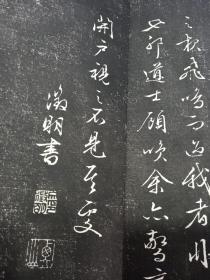 之夜飛鳴而過我者非
也邪道士顧笑余亦驚
開戶視之不見其處
徵明書